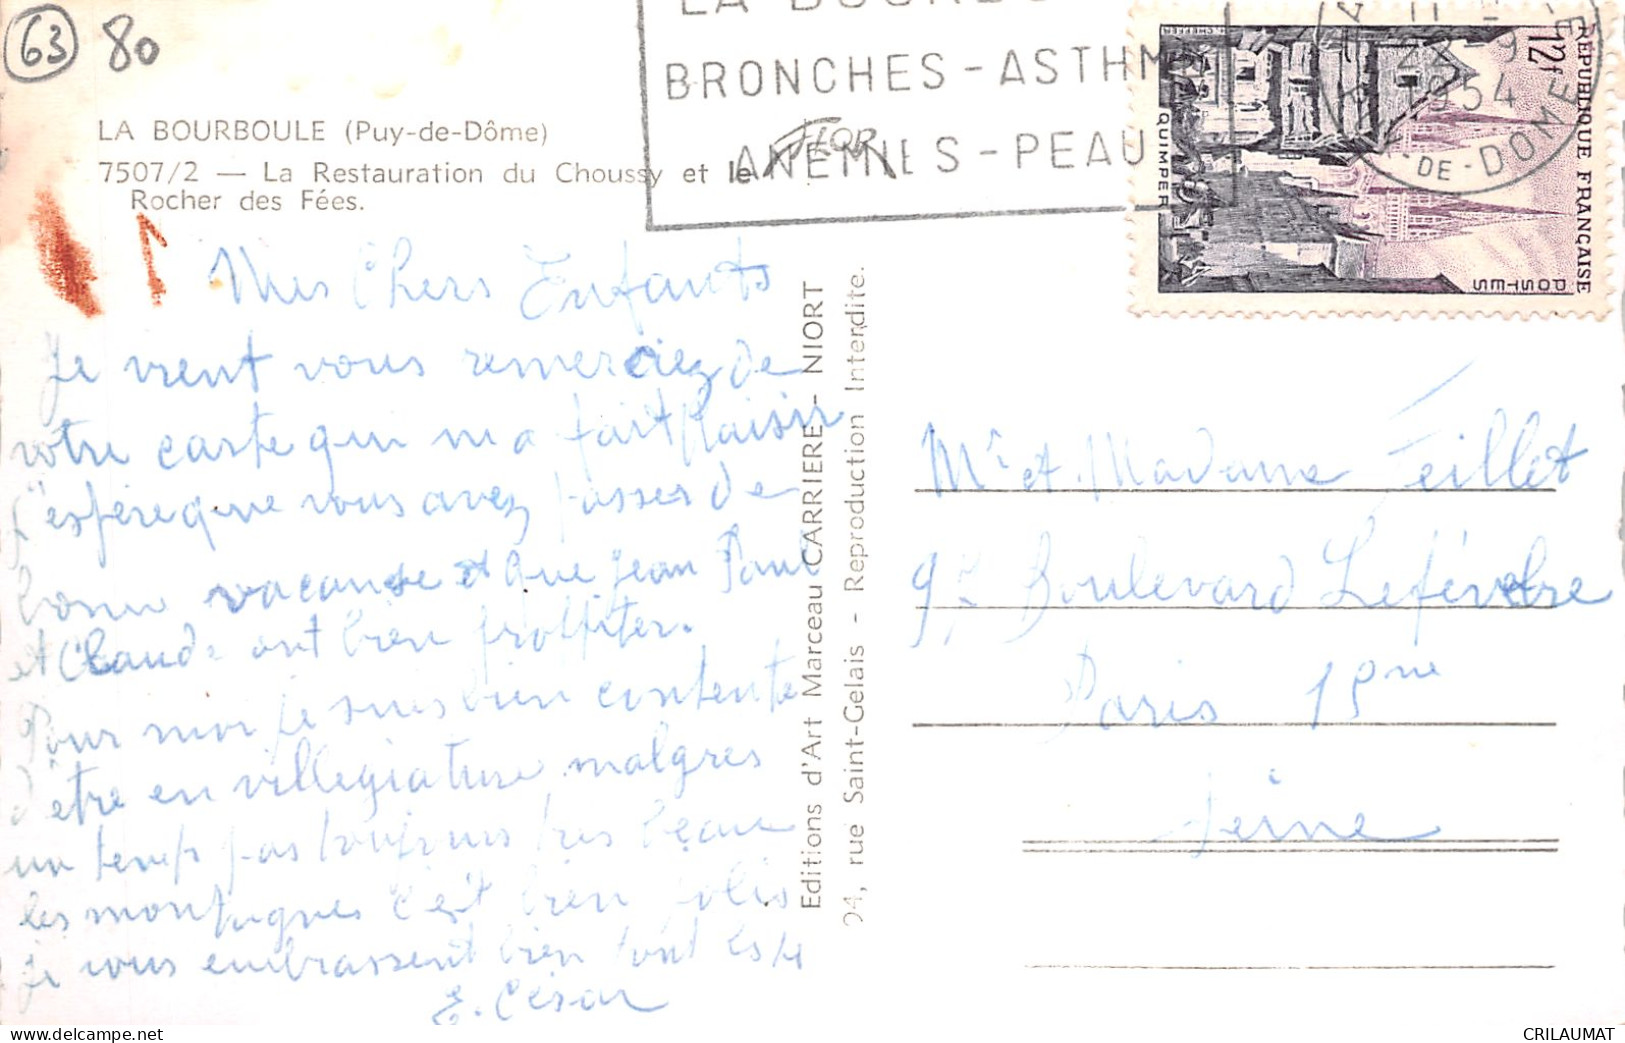 63
80
LA BOURBOULE (Puy-de-Dôme)
7507/2 — La Restauration du Choussy et le
Rocher des Fées.
FLOR
BRONCHES - ASTHM
ANEMIES - PEAU
1954
-DE-DOME
12f
REPUBLIQUE FRANÇAISE
POSTES
QUIMPER
1
Mes Chers Enfants
Je vient vous remerciez de
votre carte qui m a fait Plaisir
J'espère que vous avez passer de
bonne vacance et que jean Paul
et Claude ont bien proffiter.
Pour moi je suis bien contente
d'être en villegiature malgres
un temps pas toujours tres beau
les montagnes c'est bien jolis
je vous embrassent bien tout les 4
E. César
Editions d'Art Marceau CARRIERE - NIORT
94, rue Saint-Gelais - Reproduction Interdite.
Mr et Madame Feillet
97 Boulevard Lefévebre
Paris 15me
Seine
www.delcampe.net
CRILAUMAT